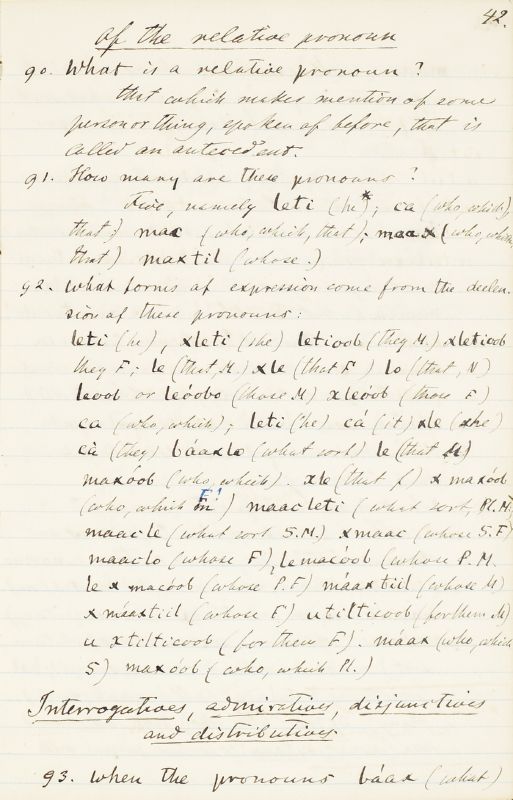 42.
Of the relative pronoun
90. What is a relative pronoun?
that which makes mention of some
person or thing, spoken of before, that is
called an antecedent.
91. How many are these pronouns?
Five, namely leti (he*; ca (who, which),
that;) mac (who, which, that); maax (who, which
that) maxtil (whose.)
92. What forms of expression come from the declen-
sion of these pronouns:
leti (he), xleti (she) letioob (they M.) xletioob
they F; le (that M.) xle (that F) lo (that, N)
leoob or leóobo (those M) xleóob (those F)
ca (who, which); leti (he) cá (it) xle (she)
cà (they) báaxlo (what sort) le (that M)
maxóob (who, which). xle (that f) x maxóob
(who, which F!) maacleti (what sort, Pl. M.)
maacle (what sort S.M.) xmaac (whose S.F)
maaclo (whose F), lemacóob (whose P.M.
le x macóob (whose P.F) máaxtiil (whose M)
x máaxtiil (whose F) utilticoob (for them M)
u xtilticoob (for them F). máax (who, which
S) maxóob (who, which Pl.)
Interrogatives, admiratives, disjunctives
and distributives
93. When the pronouns báax (what)